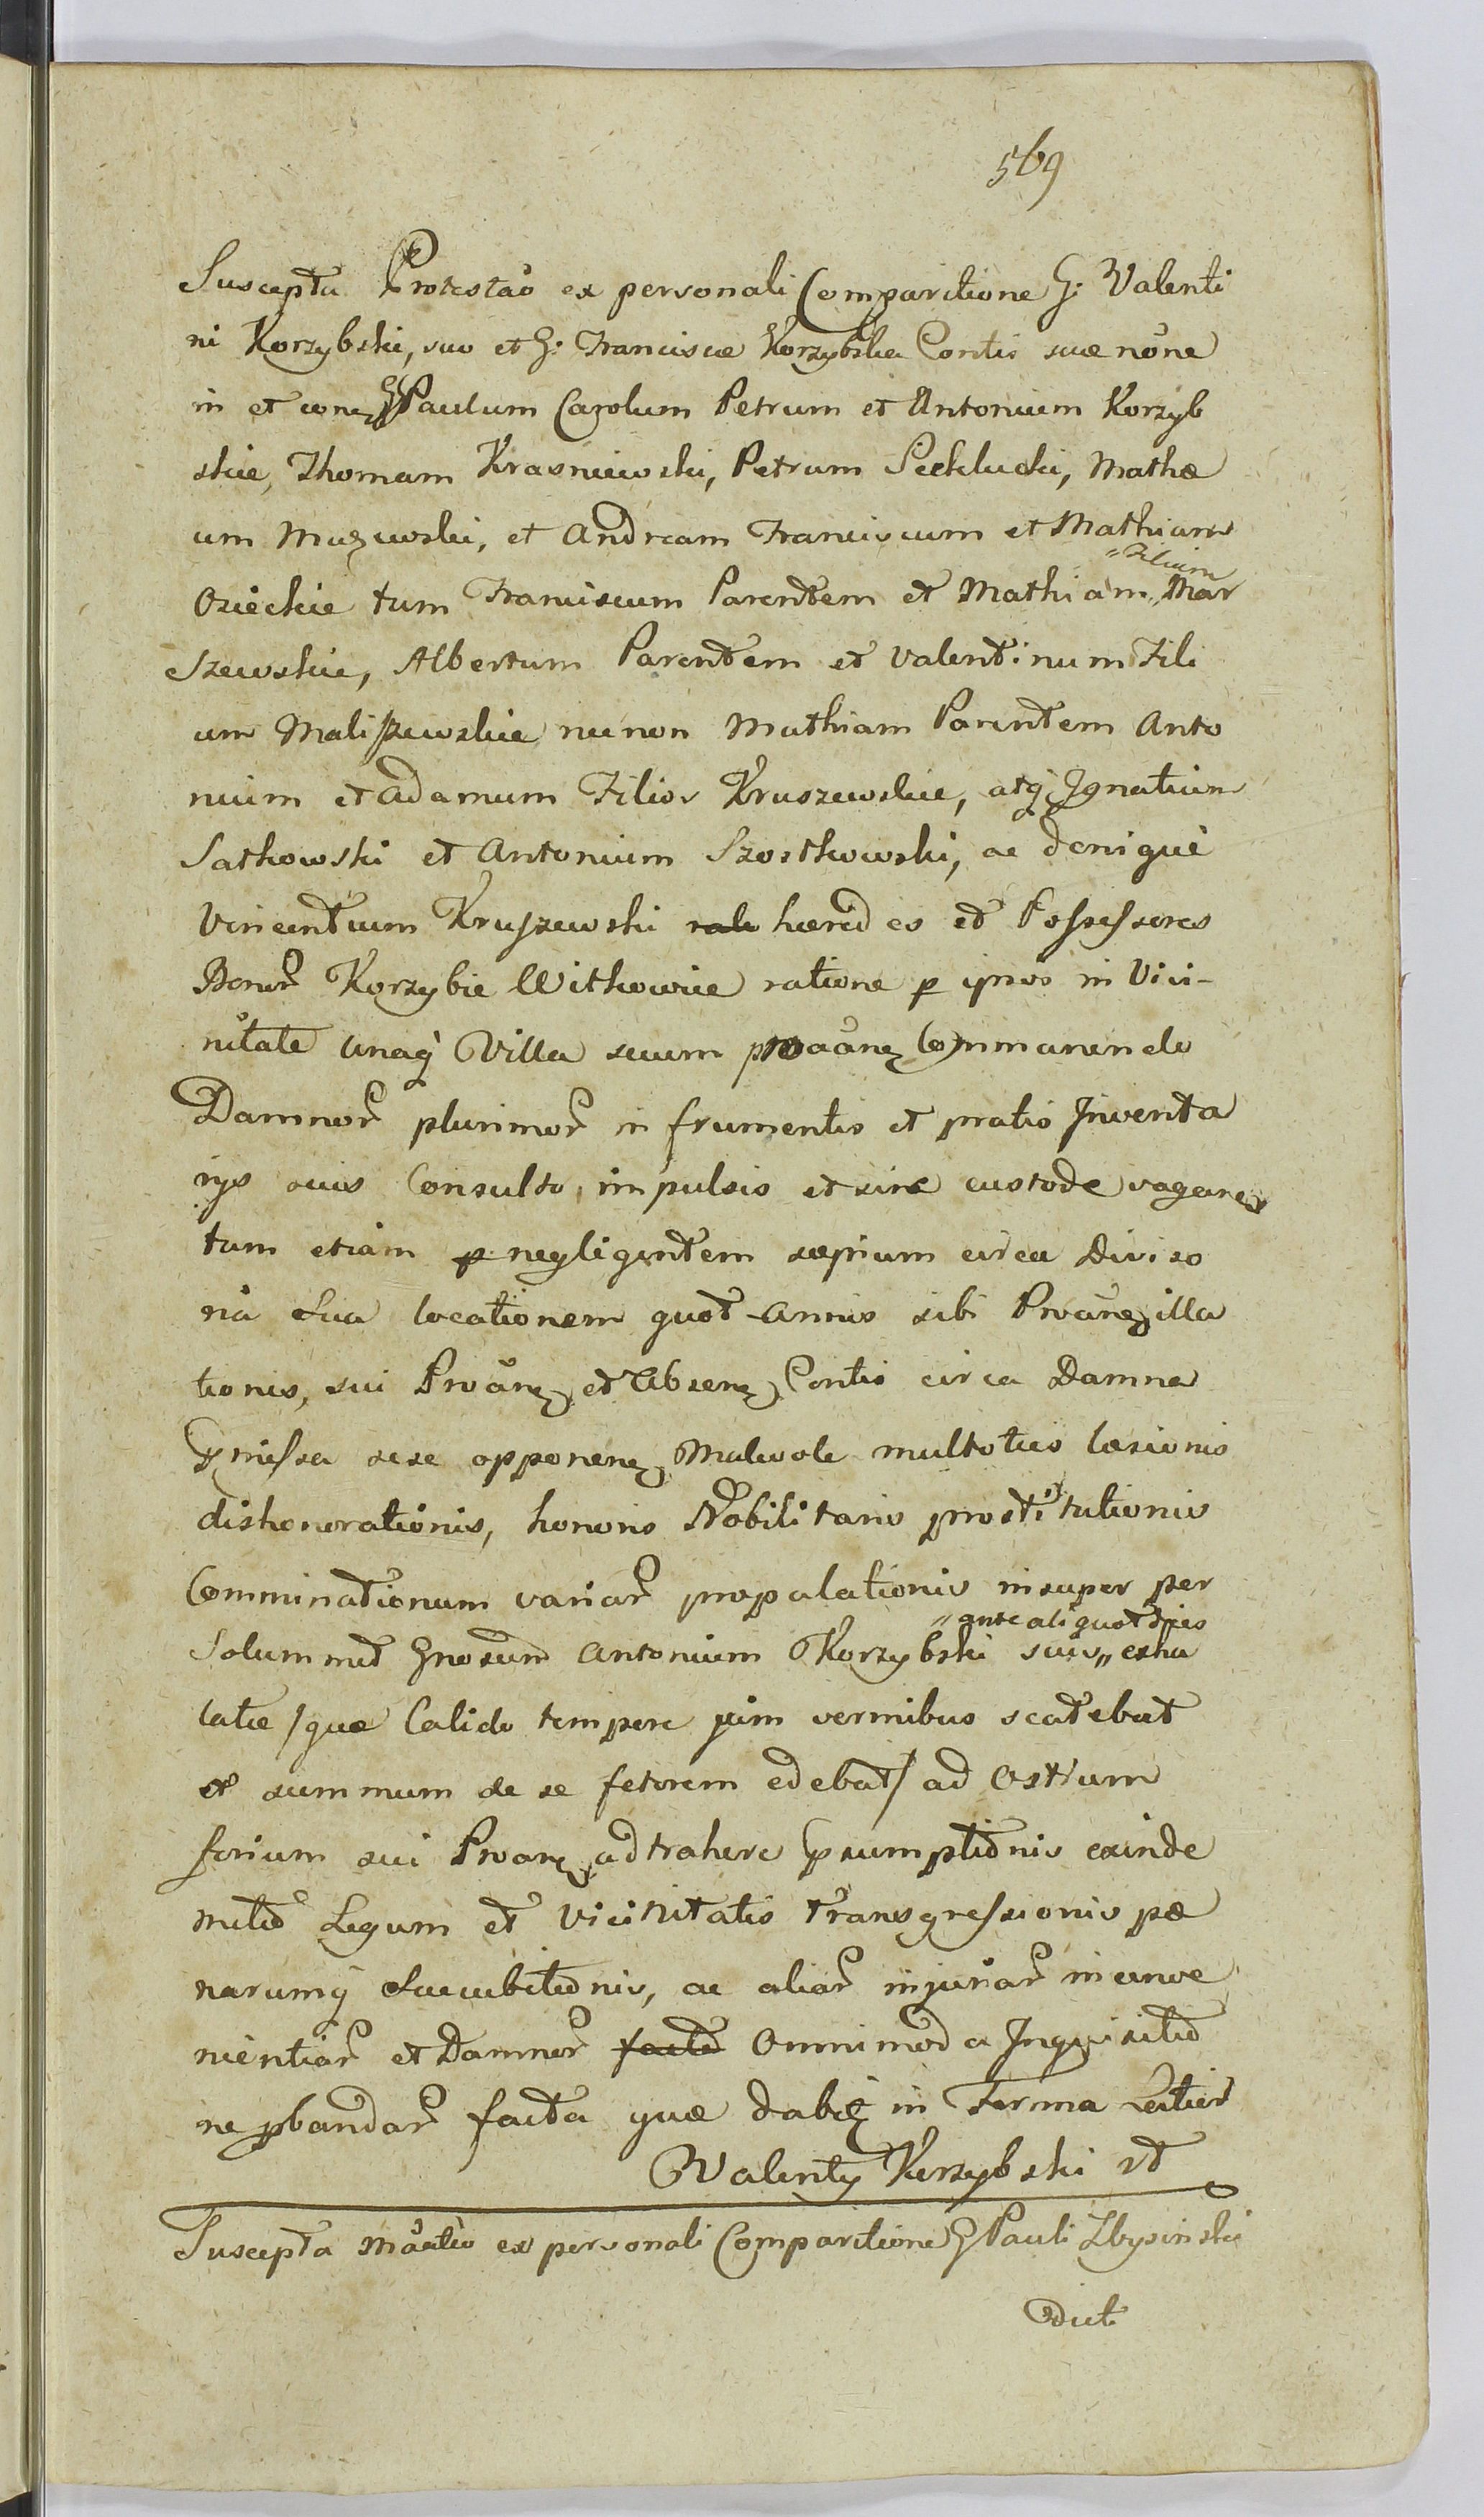 569
Suscepta Protestão ex personali Comparitione G: Valenti
ni Korzybski, suo et G: Franciscæ Korzybska Contis suæ nõne
in et conz GG Paulum Carolum Petrum et Antonium Korzyb
skie, Thomam Krasniewski, Petrum Piekłucki, Mathæ
um Murzewski, et Andream Franciscum et Mathiam
Osieckie tum Franciscum Parentem et Mathiam „Filium„ Mar
szewskie, Albertum Parentem et Valentinum Fili
um Maliszewskie necnon Mathiam Parentem Anto
nium et Adamum Filios Kruszewskie, atq Ignatium
Satkowski et Antonium Szostkowski, ac deniquè
Vincentium Kruszewski hæredes et Possessores
Bonor Korzybie Witkowice ratione p ipsos in Vici-
nitate unaq Villa secum protãnz Commanendo
Damnor plurimor in frumentis et pratis Inventa
rys suis Consulto impulsis et sine custode vaganz
tum etiam p negligentem sæpium circa Diviso
ria Sua locationem quot annis sibi Protãnz illa
tionis, sui Protãnz et Absenz Contis circa Damna
Præmissa sese opponenz Malevole multoties læsionis
dishonorationis, honoris Nobilitaris prostitutionis
Comminationum variar propalationis insuper per
Solummet Gnosum Antonium Korzybski suis „ante aliquot dies„ exha
latæ /quæ Calido tempore jam vermibus scatebat
et summum de se fetorem edebat/ ad Ostium
forium sui Protanz adtrahere Præsumptionis exinde
meted Legum et Vicinitatis transgressionis pæ
narumq Succubitionis, ac aliar injuriar inconve
nientiar et Damnor facto Omnimoda Inquisitio
ne pbandar facta quæ dabiz in Forma Latiori
Walenty Korzybski
Suscepta Mãtio ex personali Comparitione G Pauli Zbysinski
Dict